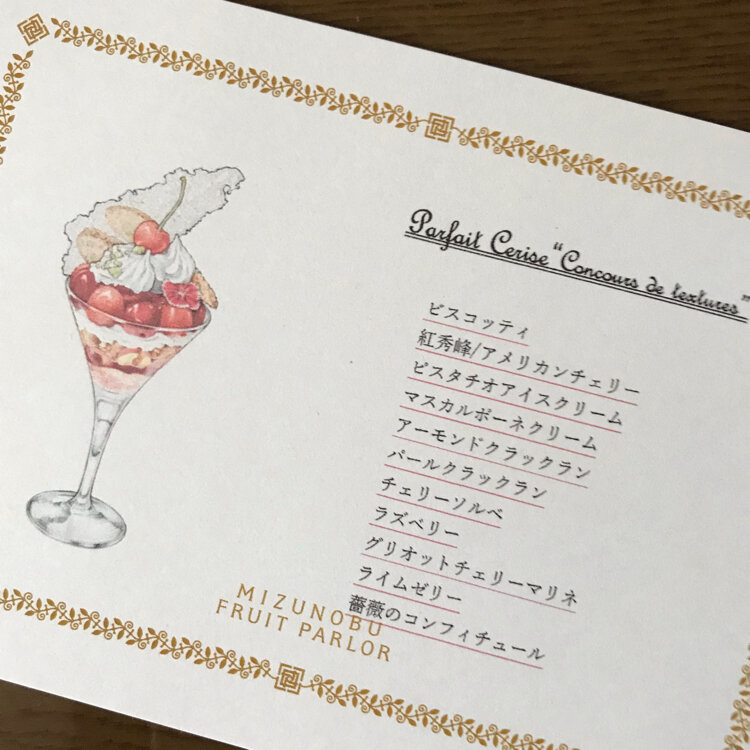 Parfait Cerise "Concours de textures"
ビスコッティ
紅秀峰/アメリカンチェリー
ピスタチオアイスクリーム
マスカルポーネクリーム
アーモンドクラックラン
パールクラックラン
チェリーソルベ
ラズベリー
グリオットチェリーマリネ
ライムゼリー
薔薇のコンフィチュール
MIZUNOBU
FRUIT PARLOR